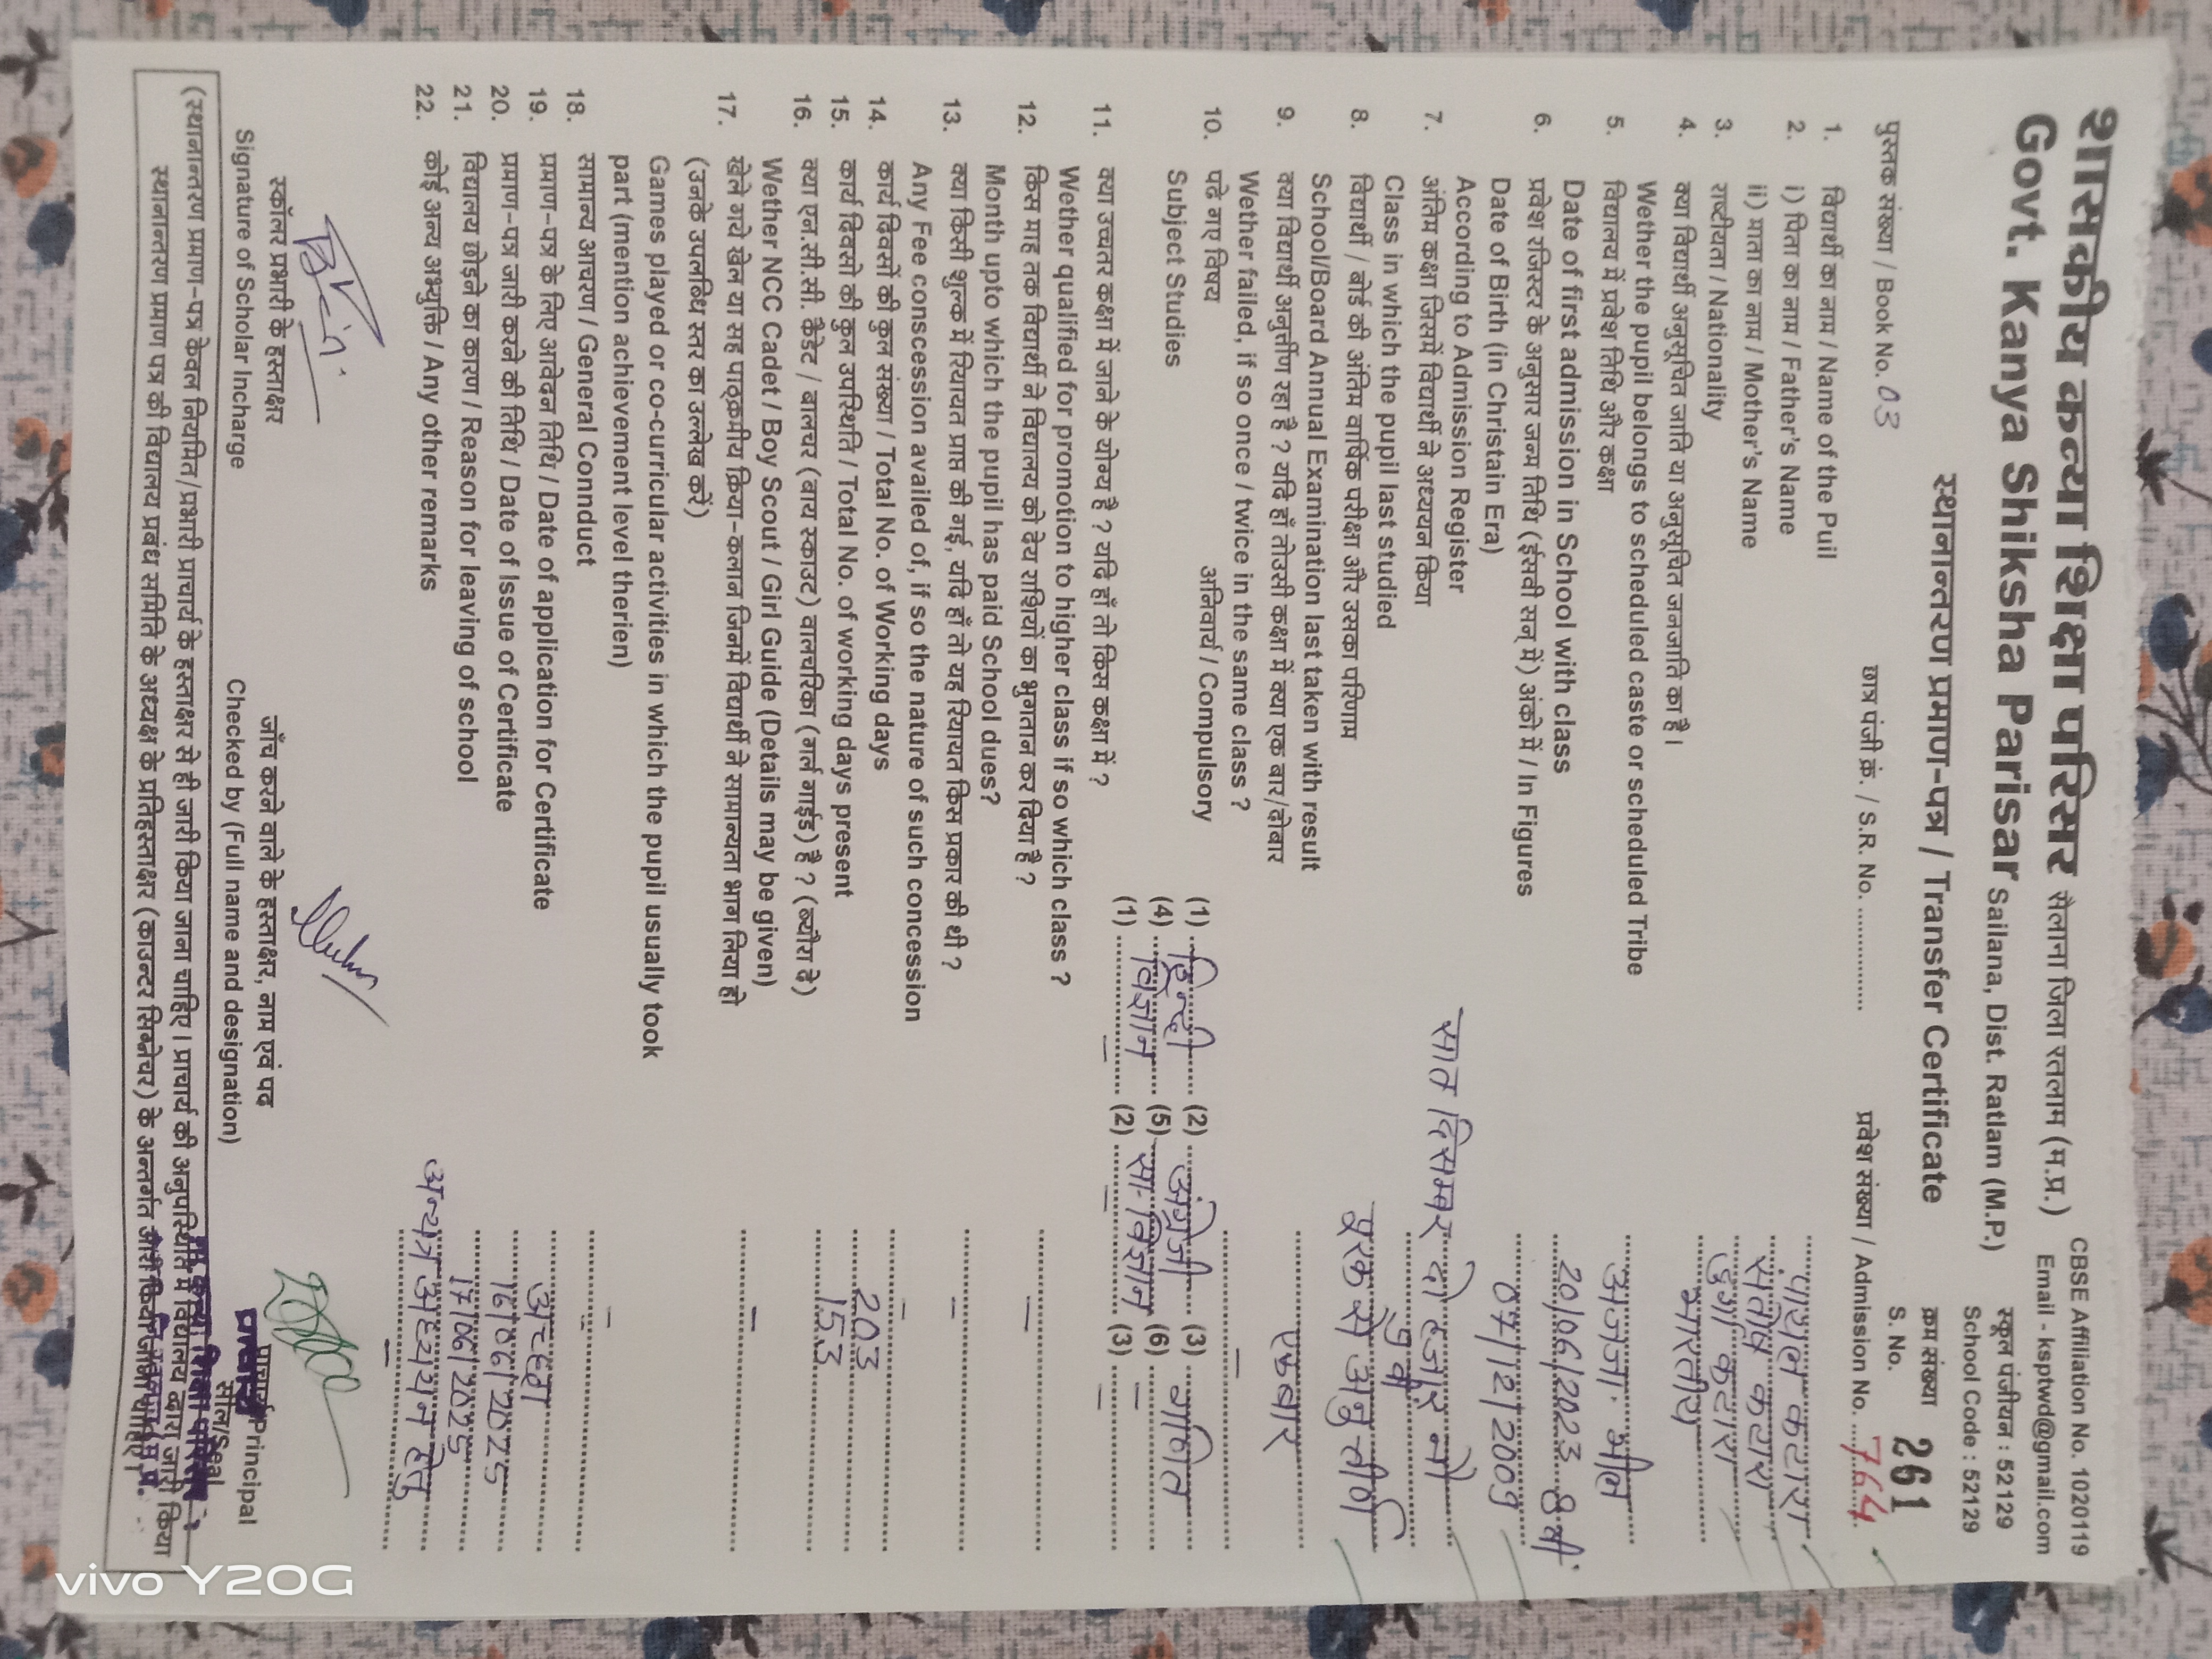 शासकीय कन्या शिक्षा परिसर सैलाना जिला रतलाम (म.प्र.)
Govt. Kanya Shiksha Parisar Sailana, Dist. Ratlam (M.P.)
CBSE Affiliation No. 1020119
Email - ksptwd@gmail.com
स्कूल पंजीयन : 52129
School Code : 52129
स्थानान्तरण प्रमाण-पत्र / Transfer Certificate
क्रम संख्या
S. No. 261
पुस्तक संख्या / Book No. 03 छात्र पंजी क्रं. / S.R. No. .............. प्रवेश संख्या / Admission No. ....764
1. विद्यार्थी का नाम / Name of the Puil पायल कटारा
2. i) पिता का नाम / Father's Name संतोष कटारा
ii) माता का नाम / Mother's Name दुर्गा कटारा
3. राष्टीयता / Nationality भारतीय
4. क्या विद्यार्थी अनुसूचित जाति या अनुसूचित जनजाति का है।
Wether the pupil belongs to scheduled caste or scheduled Tribe अजजा. भील
5. विद्यालय में प्रवेश तिथि और कक्षा
Date of first admission in School with class 20/06/2023 8 वी
6. प्रवेश रजिस्टर के अनुसार जन्म तिथि (ईसवी सन् में) अंको में / In Figures 07/12/2009
Date of Birth (in Christain Era)
According to Admission Register सात दिसम्बर दो हजार नौ
7. अंतिम कक्षा जिसमें विद्यार्थी ने अध्ययन किया
Class in which the pupil last studied 9 वी
8. विद्यार्थी / बोर्ड की अंतिम वार्षिक परीक्षा और उसका परिणाम पूरक से अनुत्तीर्ण
School/Board Annual Examination last taken with result
9. क्या विद्यार्थी अनुर्त्तीण रहा है ? यदि हाँ तोउसी कक्षा में क्या एक बार/दोबार एकबार
Wether failed, if so once / twice in the same class ? –
10. पढे गए विषय अनिवार्य / Compulsory (1) हिन्दी (2) अंग्रेजी (3) गणित
Subject Studies (4) विज्ञान (5) सा. विज्ञान (6) –
(1) – (2) – (3) –
11. क्या उच्चतर कक्षा में जाने के योग्य है ? यदि हाँ तो किस कक्षा में ?
Wether qualified for promotion to higher class if so which class ?
12. किस माह तक विद्यार्थी ने विद्यालय को देय राशियों का भुगतान कर दिया है ? –
Month upto which the pupil has paid School dues?
13. क्या किसी शुल्क में रियायत प्राप्त की गई, यदि हाँ तो यह रियायत किस प्रकार की थी ? –
Any Fee conscession availed of, if so the nature of such concession
14. कार्य दिवसों की कुल संख्या / Total No. of Working days 203
15. कार्य दिवसो की कुल उपस्थिति / Total No. of working days present 153
16. क्या एन.सी.सी. कैडेट / बालचर (बाय स्काउट) वालचरिका (गर्ल गाईड) है ? (ब्यौरा दे)
Wether NCC Cadet / Boy Scout / Girl Guide (Details may be given) –
17. खेले गये खेल या सह पाठ्क्रमीय क्रिया-कलान जिनमें विद्यार्थी ने सामान्यता भाग लिया हो
(उनके उपलब्धि स्तर का उल्लेख करें)
Games played or co-curricular activities in which the pupil usually took
part (mention achievement level therien) –
18. सामान्य आचरण / General Connduct अच्छा
19. प्रमाण-पत्र के लिए आवेदन तिथि / Date of application for Certificate 16/06/2025
20. प्रमाण-पत्र जारी करने की तिथि / Date of Issue of Certificate 17/06/2025
21. विद्यालय छोड़ने का कारण / Reason for leaving of school अन्यत्र अध्ययन हेतु
22. कोई अन्य अभ्युक्ति / Any other remarks –
स्कॉलर प्रभारी के हस्ताक्षर जाँच करने वाले के हस्ताक्षर, नाम एवं पद प्राचार्य/Principal
Signature of Scholar Incharge Checked by (Full name and designation) सील/Seal
(स्थानान्तरण प्रमाण-पत्र केवल नियमित/प्रभारी प्राचार्य के हस्ताक्षर से ही जारी किया जाना चाहिए। प्राचार्य की अनुपस्थिति में विद्यालय द्वारा जारी किया
स्थानान्तरण प्रमाण पत्र की विद्यालय प्रबंध समिति के अध्यक्ष के प्रतिहस्ताक्षर (काउन्टर सिग्नेचर) के अन्तर्गत जारी किया जाना चाहिए।
vivo Y20G